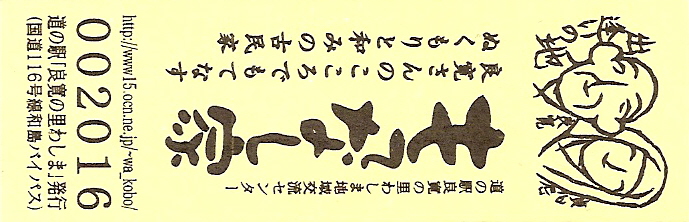 出逢いの地
良寛
貞心尼
ぬくもりと和みの古民家
良寛さんのこころでもてなす
もてなし家
道の駅良寛の里わしま地域交流センター
http://www15.ocn.ne.jp/~wa_kobo/
002016
道の駅「良寛の里わしま」発行
(国道116号線和島バイパス)